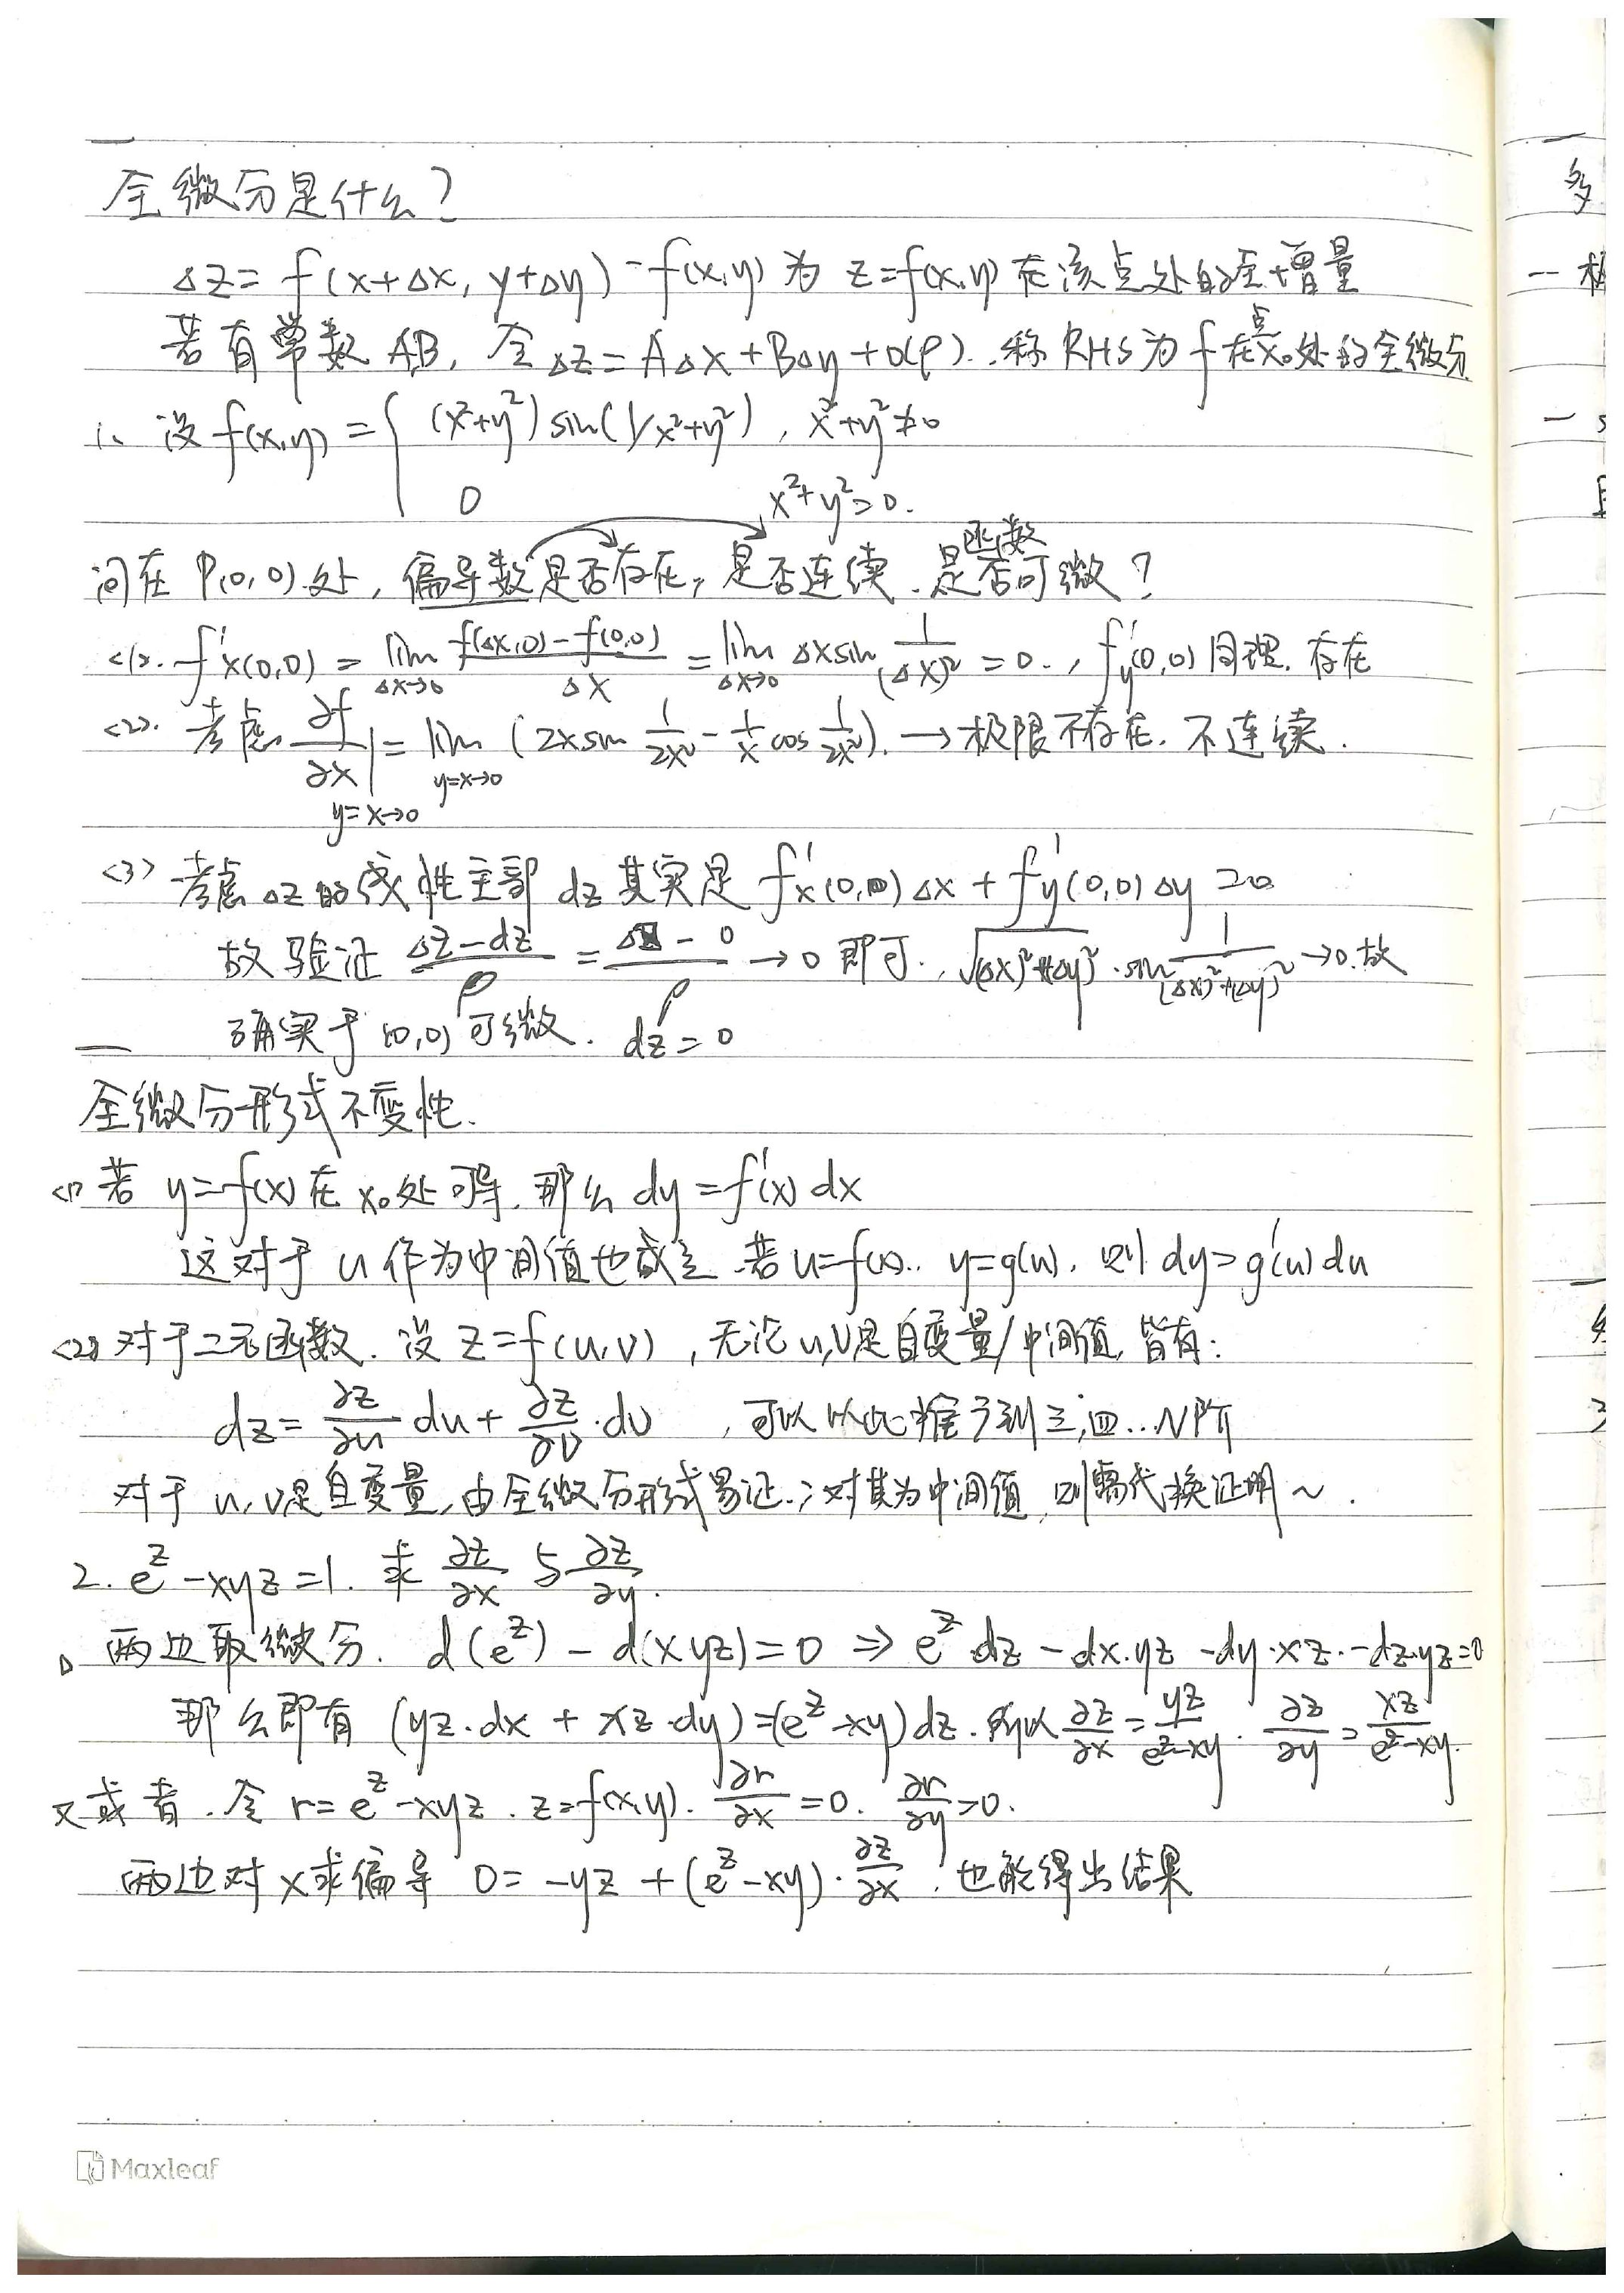 全微分是什么?
Δz = f(x+Δx, y+Δy) - f(x,y) 为 z=f(x,y) 在该点处的全增量
若有常数 AB, 令 Δz = AΔx + BΔy + o(ρ). 称 RHS 为 f 在点x₀处的全微分
1、设 f(x,y) = { (x²+y²) sin(1/x²+y²), x²+y²≠0
0 x²+y²=0.
问在 P(0,0) 处, 偏导数是否存在, 是否连续. 函数是否可微?
<1>. f'x(0,0) = lim Δx→0 (f(Δx,0) - f(0,0))/Δx = lim Δx→0 Δx sin 1/(Δx)² = 0., f'y(0,0) 同理. 存在
<2>. 考虑 ∂f/∂x | y=x→0 = lim y=x→0 (2x sin 1/2x² - 1/x cos 1/2x²). → 极限不存在. 不连续.
<3> 考虑 Δz 的线性主部 dz 其实是 f'x(0,0) Δx + f'y(0,0) Δy = 0
故验证 (Δz-dz)/ρ = (Δz - 0)/ρ → 0 即可., √(Δx)²+(Δy)² · sin 1/(Δx)²+(Δy)² → 0. 故
确实于 (0,0) 可微. dz = 0
全微分形式不变性.
<1> 若 y=f(x) 在 x₀处可导. 那么 dy = f'(x) dx
这对于 u 作为中间值也成立. 若 u=f(x).. y=g(u). 则 dy = g'(u) du
<2> 对于二元函数. 设 z=f(u,v), 无论 u,v是自变量/中间值, 皆有:
dz = ∂z/∂u du + ∂z/∂v · dv , 可以以此推广到三,四...N阶
对于 u,v是自变量, 由全微分形式易证.; 对其为中间值, 则需代换证明~.
2. e^z - xyz = 1. 求 ∂z/∂x 与 ∂z/∂y.
两边取微分. d(e^z) - d(xyz) = 0 ⇒ e^z dz - dx·yz - dy·xz - dz·yz = 0
那么即有 (yz·dx + xz·dy) = (e^z - xy) dz. 所以 ∂z/∂x = yz/e^z-xy. ∂z/∂y = xz/e^z-xy.
又或者. 令 r = e^z - xyz. z=f(x,y). ∂r/∂x = 0. ∂r/∂y = 0.
两边对 x 求偏导 0 = -yz + (e^z - xy)·∂z/∂x. 也能得出结果
Maxleaf